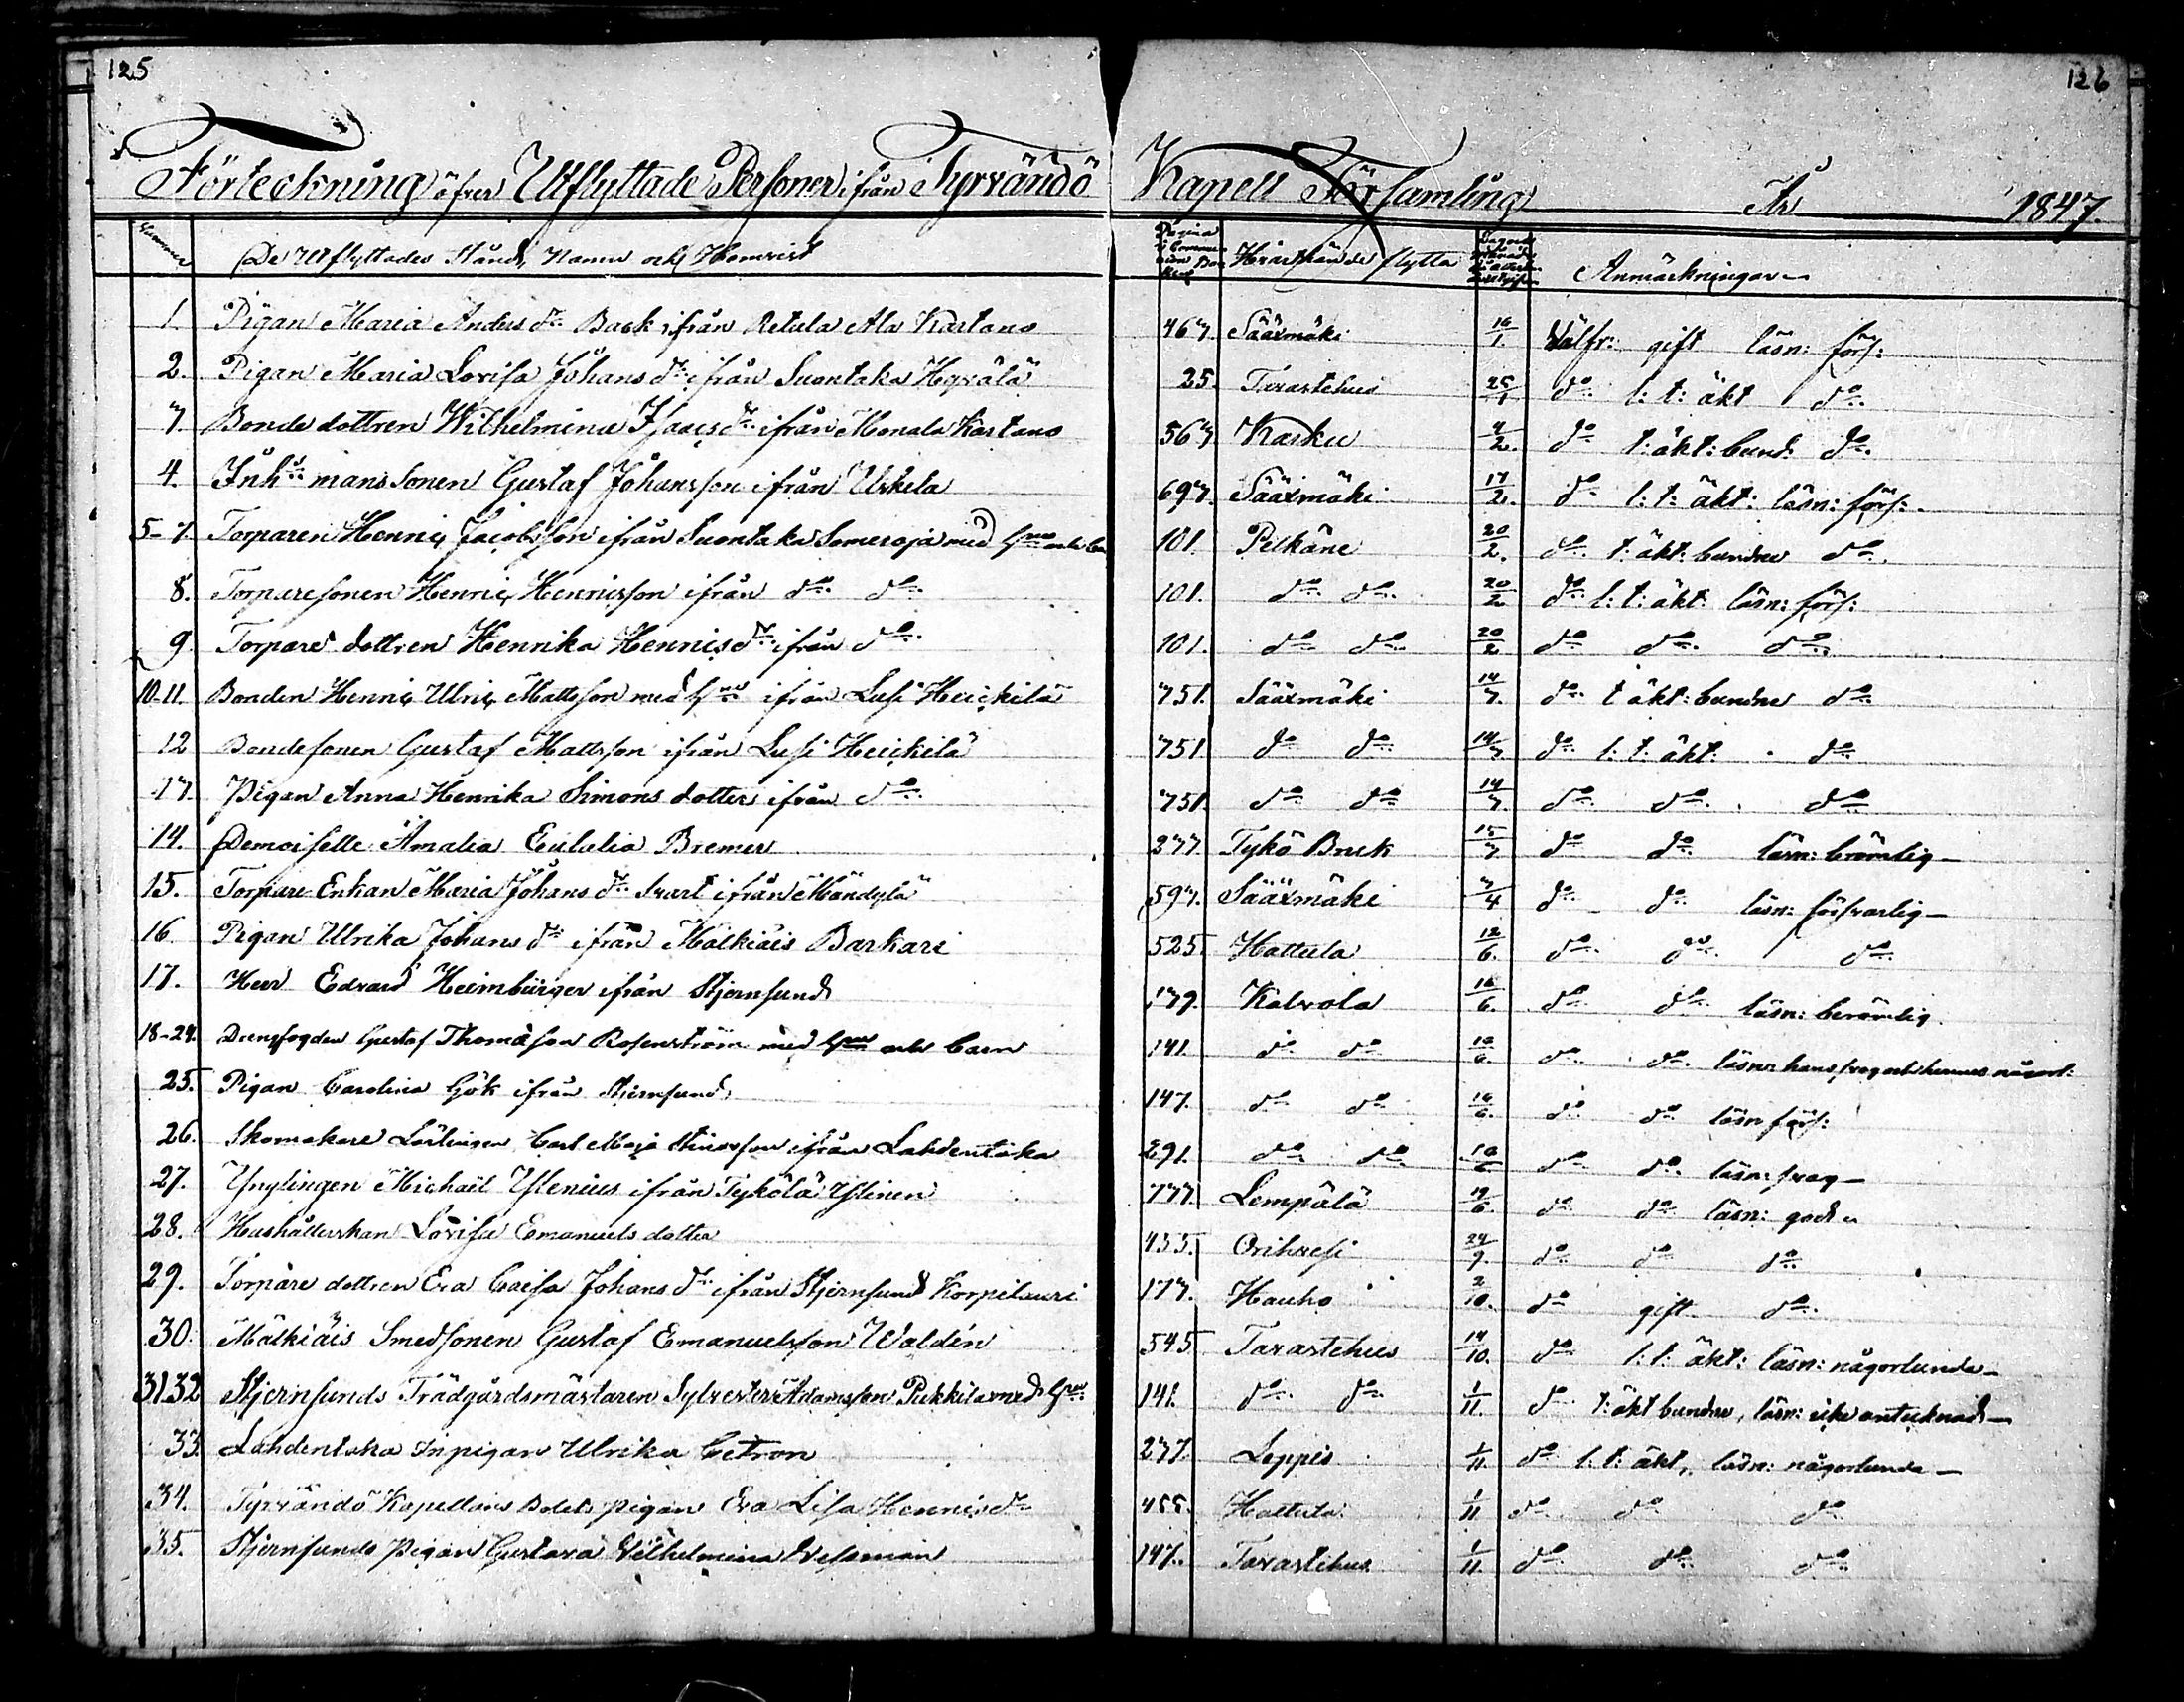 125
126
Förteckning öfver Utflyttade Personer ifrån Tyrvändö Kapell Församling År 1847.
Nummer De Utflyttades Stånd, Namn och Hemvist Pagina i Commu- nion Bo- ken Hvart hän de flytta Dag och Månad Anmärkningar
1. Pigan Maria Anders dr Back ifrån Retula Ala Kartano 467 Sääxmäki 16/1. Välfr: gift läsn: förs:
2. Pigan Maria Lovisa Johans dr ifrån Suontaka Hyvälä 25 Tavastehus 25/1 do l: t: äkt do
3. Bonde dottren Wilhelmina Isaacs dr ifrån Monala Kartano 563 Karku 4/2. do t: äkt: bund. do
4. Inhs mans sonen Gustaf Johansson ifrån Uskela 693. Sääxmäki 17/2. do l: t: äkt: läsn: förs:
5-7. Torparen Henric Jacobsson ifrån Suontaka Someroja med hru och barn 101. Pelkäne 20/2. do t: äkt: bundne do
8. Torparesonen Henric Henricsson ifrån do do 101. do do 20/2 do l: t: äkt: läsn: förs:
9 Torpare dottren Henrika Henrics dr ifrån do 101. do do 20/2 do do do
10-11. Bonden Henric Ulric Mattsson med hru ifrån Lusi Heickilä 351. Sääxmäki 14/3. do t äkt: bundne do
12 Bondesonen Gustaf Mattsson ifrån Lusi Heickilä 351. do do 14/3 do l: t: äkt: do
13. Pigan Anna Henrika Simons dotter ifrån do 351. do do 14/3. do do do
14. Demoiselle Amalia Eulalia Bremer 233. Tykö Bruk 15/3 do do läsn: berömlig
15. Torpare Enkan Maria Johans dr Svart ifrån Mändylä 593. Sääxmäki 3/4 do do läsn: försvarlig
16. Pigan Ulrika Johans dr ifrån Mälkiäis Barkari 525. Hattula 12/6. do do do
17. Herr Edvard Heimbürger ifrån Stjernsund 139. Kalvola 16/6. do do läsn: berömlig
18-24. Drengfogden Gustaf Thomasson Rosenström med hru och barn 141. do do 16/6. do do läsn: hans svag och hennes någorl:
25. Pigan Carolina Gök ifrån Stjernsund 147. do do 16/6. do do läsn förs:
26. Skomakare Lärlingen Carl Maja Stinasson ifrån Lahdentaka 291. do do 16/6 do do läsn: svag
27. Ynglingen Michaël Ylenius ifrån Tykölä Ylinen 333. Lempälä 19/6. do do läsn: god
28. Hushållerskan Lovisa Emanuels dotter 455. Orihvesi 24/9. do do do
29. Torpare dottren Eva Caisa Johans dr ifrån Stjernsund Korpilauri 173. Hauho 2/10. do gift do
30. Mälkiäis Smedsonen Gustaf Emanuelsson Waldén 545 Tavastehus 14/10. do l: t: äkt: läsn: någorlunda
31.32 Stjernsunds Trädgårdsmästaren Sylvester Adamsson Pukkila med hru 141. do do 1/11. do t: äkt bundne, läsn: icke antecknad
33. Lahdentaka Inpigan Ulrika Cetron 237. Leppis 1/11. do l: t: äkt, läsn: någorlunda
34. Tyrvändö Kapellans Bolets pigan Eva Lisa Henrics dr 455. Hattula 1/11 do do do
35. Stjernsunds pigan Gustava Wilhelmina Wessman 147. Tavastehus 1/11. do do do